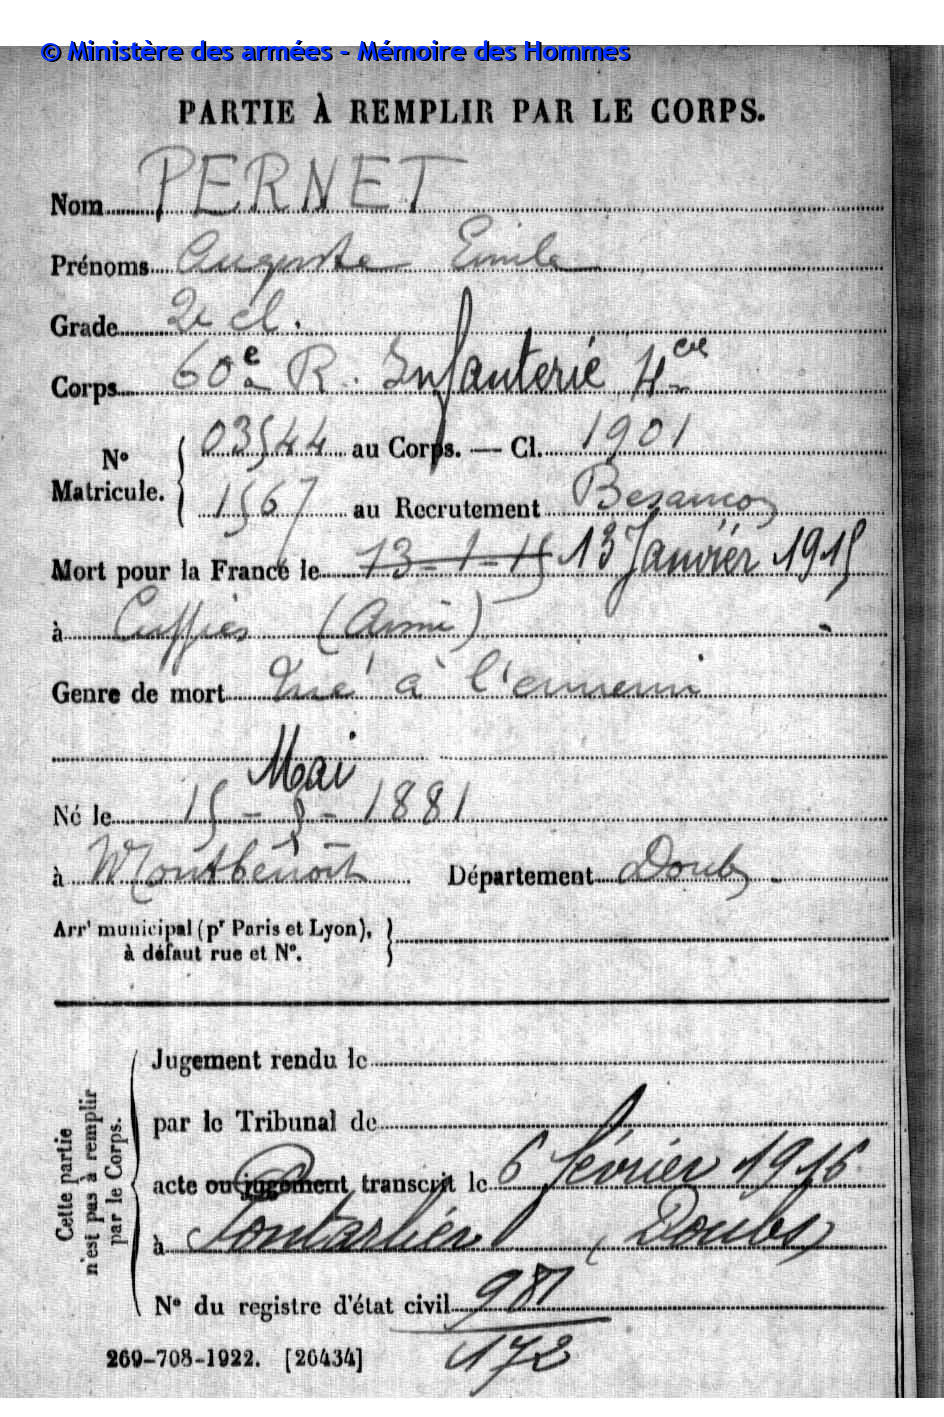 © Ministère des armées - Mémoire des Hommes
PARTIE À REMPLIR PAR LE CORPS.
Nom PERNET
Prénoms Auguste Emile
Grade 2e cl.
Corps 60e R. Infanterie 4e Cie
N° Matricule. { 03544 au Corps. — Cl. 1901
1567 au Recrutement Besançon
Mort pour la France le 13-1-15 13 Janvier 1915
à Cuffies (Aisne)
Genre de mort Tué à l'ennemi
Mai
Né le 15-5-1881
à Montbenoît Département Doubs
Arrt municipal (pr Paris et Lyon), à défaut rue et N°.
Cette partie n'est pas à remplir par le Corps.
Jugement rendu le
par le Tribunal de
acte ou jugement transcrit le 6 février 1916
à Pontarlier (Doubs)
N° du registre d'état civil 981
172
269-708-1922. [26434]